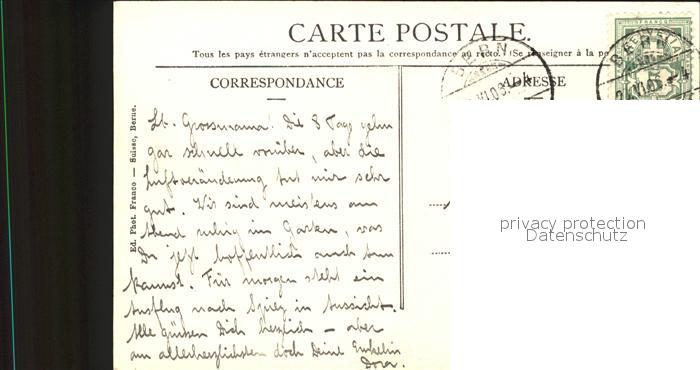 CARTE POSTALE.
Tous les pays étrangers n'acceptent pas la correspondance au recto. (Se renseigner à la po
CORRESPONDANCE
ADRESSE
Ed. Phot. Franco — Suisse, Berne.
BERN
BERN
FRANCO
5
Lb. Grossmama! Die 8 Tage gehn
gar schnell vorüber, aber die
Luftveränderung tut mir sehr
gut. Wir sind meistens am
Abend ruhig im Garten, was
Du jetzt hoffentlich auch tun
kannst. Für morgen steht ein
Ausflug nach Spiez in Aussicht.
Alle grüssen Dich herzlich – aber
am allerherzlichsten doch Deine Enkelin
Dora.
privacy protection
Datenschutz